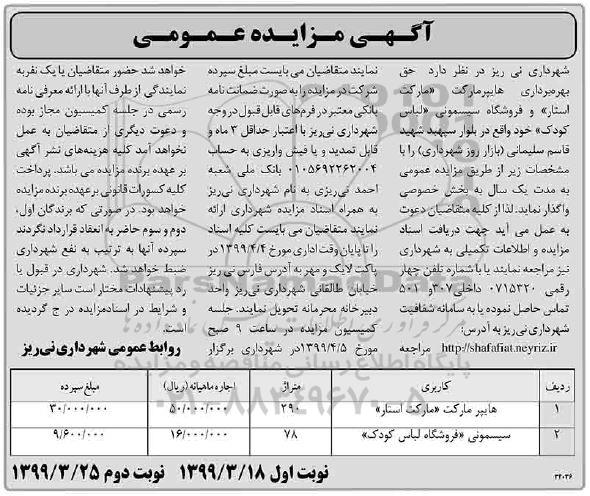 آگهی مزایده عمومی
شهرداری نی ریز در نظر دارد حق
بهره‌برداری هایپرمارکت «مارکت
استار» و فروشگاه سیسمونی «لباس
کودک» خود واقع در بلوار سپهبد شهید
قاسم سلیمانی (بازار روز شهرداری) را با
مشخصات زیر از طریق مزایده عمومی
به مدت یک سال به بخش خصوصی
واگذار نماید. لذا از کلیه متقاضیان دعوت
به عمل می آید جهت دریافت اسناد
مزایده و اطلاعات تکمیلی به شهرداری
نیز مراجعه نمایند یا با شماره تلفن چهار
رقمی ۰۷۱۵۳۲۰ داخلی ۳۰۷و ۵۰۱
تماس حاصل نموده یا به سامانه شفافیت
شهرداری نی‌ریز به آدرس:
http://shafafiat.neyriz.ir مراجعه
نمایند متقاضیان می بایست مبلغ سپرده
شرکت در مزایده را به صورت ضمانت نامه
بانکی معتبر در فرم‌های قابل قبول در وجه
شهرداری نی‌ریز با اعتبار حداقل ۳ ماه و
قابل تمدید و یا فیش واریزی به حساب
۰۱۰۵۶۹۲۲۶۲۰۰۴ بانک ملی شعبه
احمد نی‌ریزی به نام شهرداری نی‌ریز
به همراه اسناد مزایده شهرداری ارائه
نمایند متقاضیان می بایست کلیه اسناد
را تا پایان وقت اداری مورخ ۱۳۹۹/۴/۴ در
پاکت لایک و مهر به آدرس فارس نی ریز
خیابان طالقانی شهرداری نی‌ریز واحد
دبیرخانه محرمانه تحویل نمایند. جلسه
کمیسیون مزایده در ساعت ۹ صبح
مورخ ۱۳۹۹/۴/۵ در شهرداری برگزار
خواهد شد حضور متقاضیان یا یک نفر به
نمایندگی از طرف آنها با ارائه معرفی نامه
رسمی در جلسه کمیسیون مجاز بوده
و دعوت دیگری از متقاضیان به عمل
نخواهد آمد کلیه هزینه‌های نشر آگهی
بر عهده برنده مزایده می باشد. پرداخت
کلیه کسورات قانونی برعهده برنده مزایده
خواهد بود. در صورتی که برندگان اول،
دوم و سوم حاضر به انعقاد قرارداد نگردند
سپرده آنها به ترتیب به نفع شهرداری
ضبط خواهد شد. شهرداری در قبول یا
رد پیشنهادات مختار است سایر جزئیات
و شرایط در اسناد مزایده در ج گردیده
است.
روابط عمومی شهرداری نی‌ریز
ردیف کاربری متراژ اجاره ماهیانه (ریال) مبلغ سپرده
۱ هایپر مارکت «مارکت استار» ۲۹۰ ۵۰/۰۰۰/۰۰۰ ۳۰/۰۰۰/۰۰۰
۲ سیسمونی «فروشگاه لباس کودک» ۷۸ ۱۶/۰۰۰/۰۰۰ ۹/۶۰۰/۰۰۰
نوبت اول ۱۳۹۹/۳/۱۸ نوبت دوم ۱۳۹۹/۳/۲۵
۳۴۰۳۶
پایگاه اطلاع رسانی مناقصه و مزایده
۰۲۱-۸۸۳۴۹۶۷۰-۵